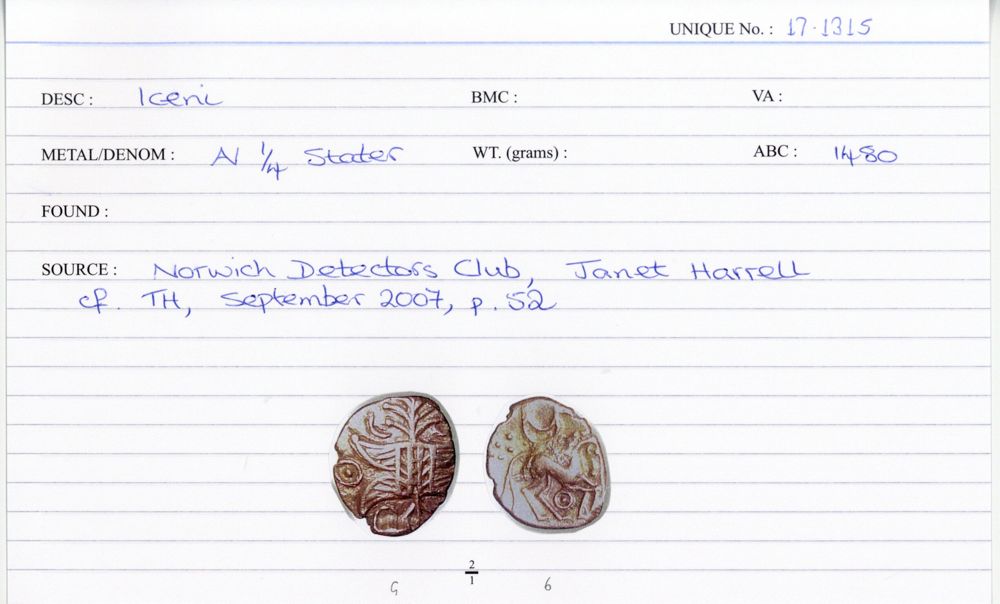 UNIQUE No. : 17.1315
DESC : Iceni BMC : VA :
METAL/DENOM : AV 1/4 Stater WT. (grams) : ABC : 1480
FOUND :
SOURCE : Norwich Detectors Club, Janet Harrell
cf. TH, September 2007, p. 52
2/1
6